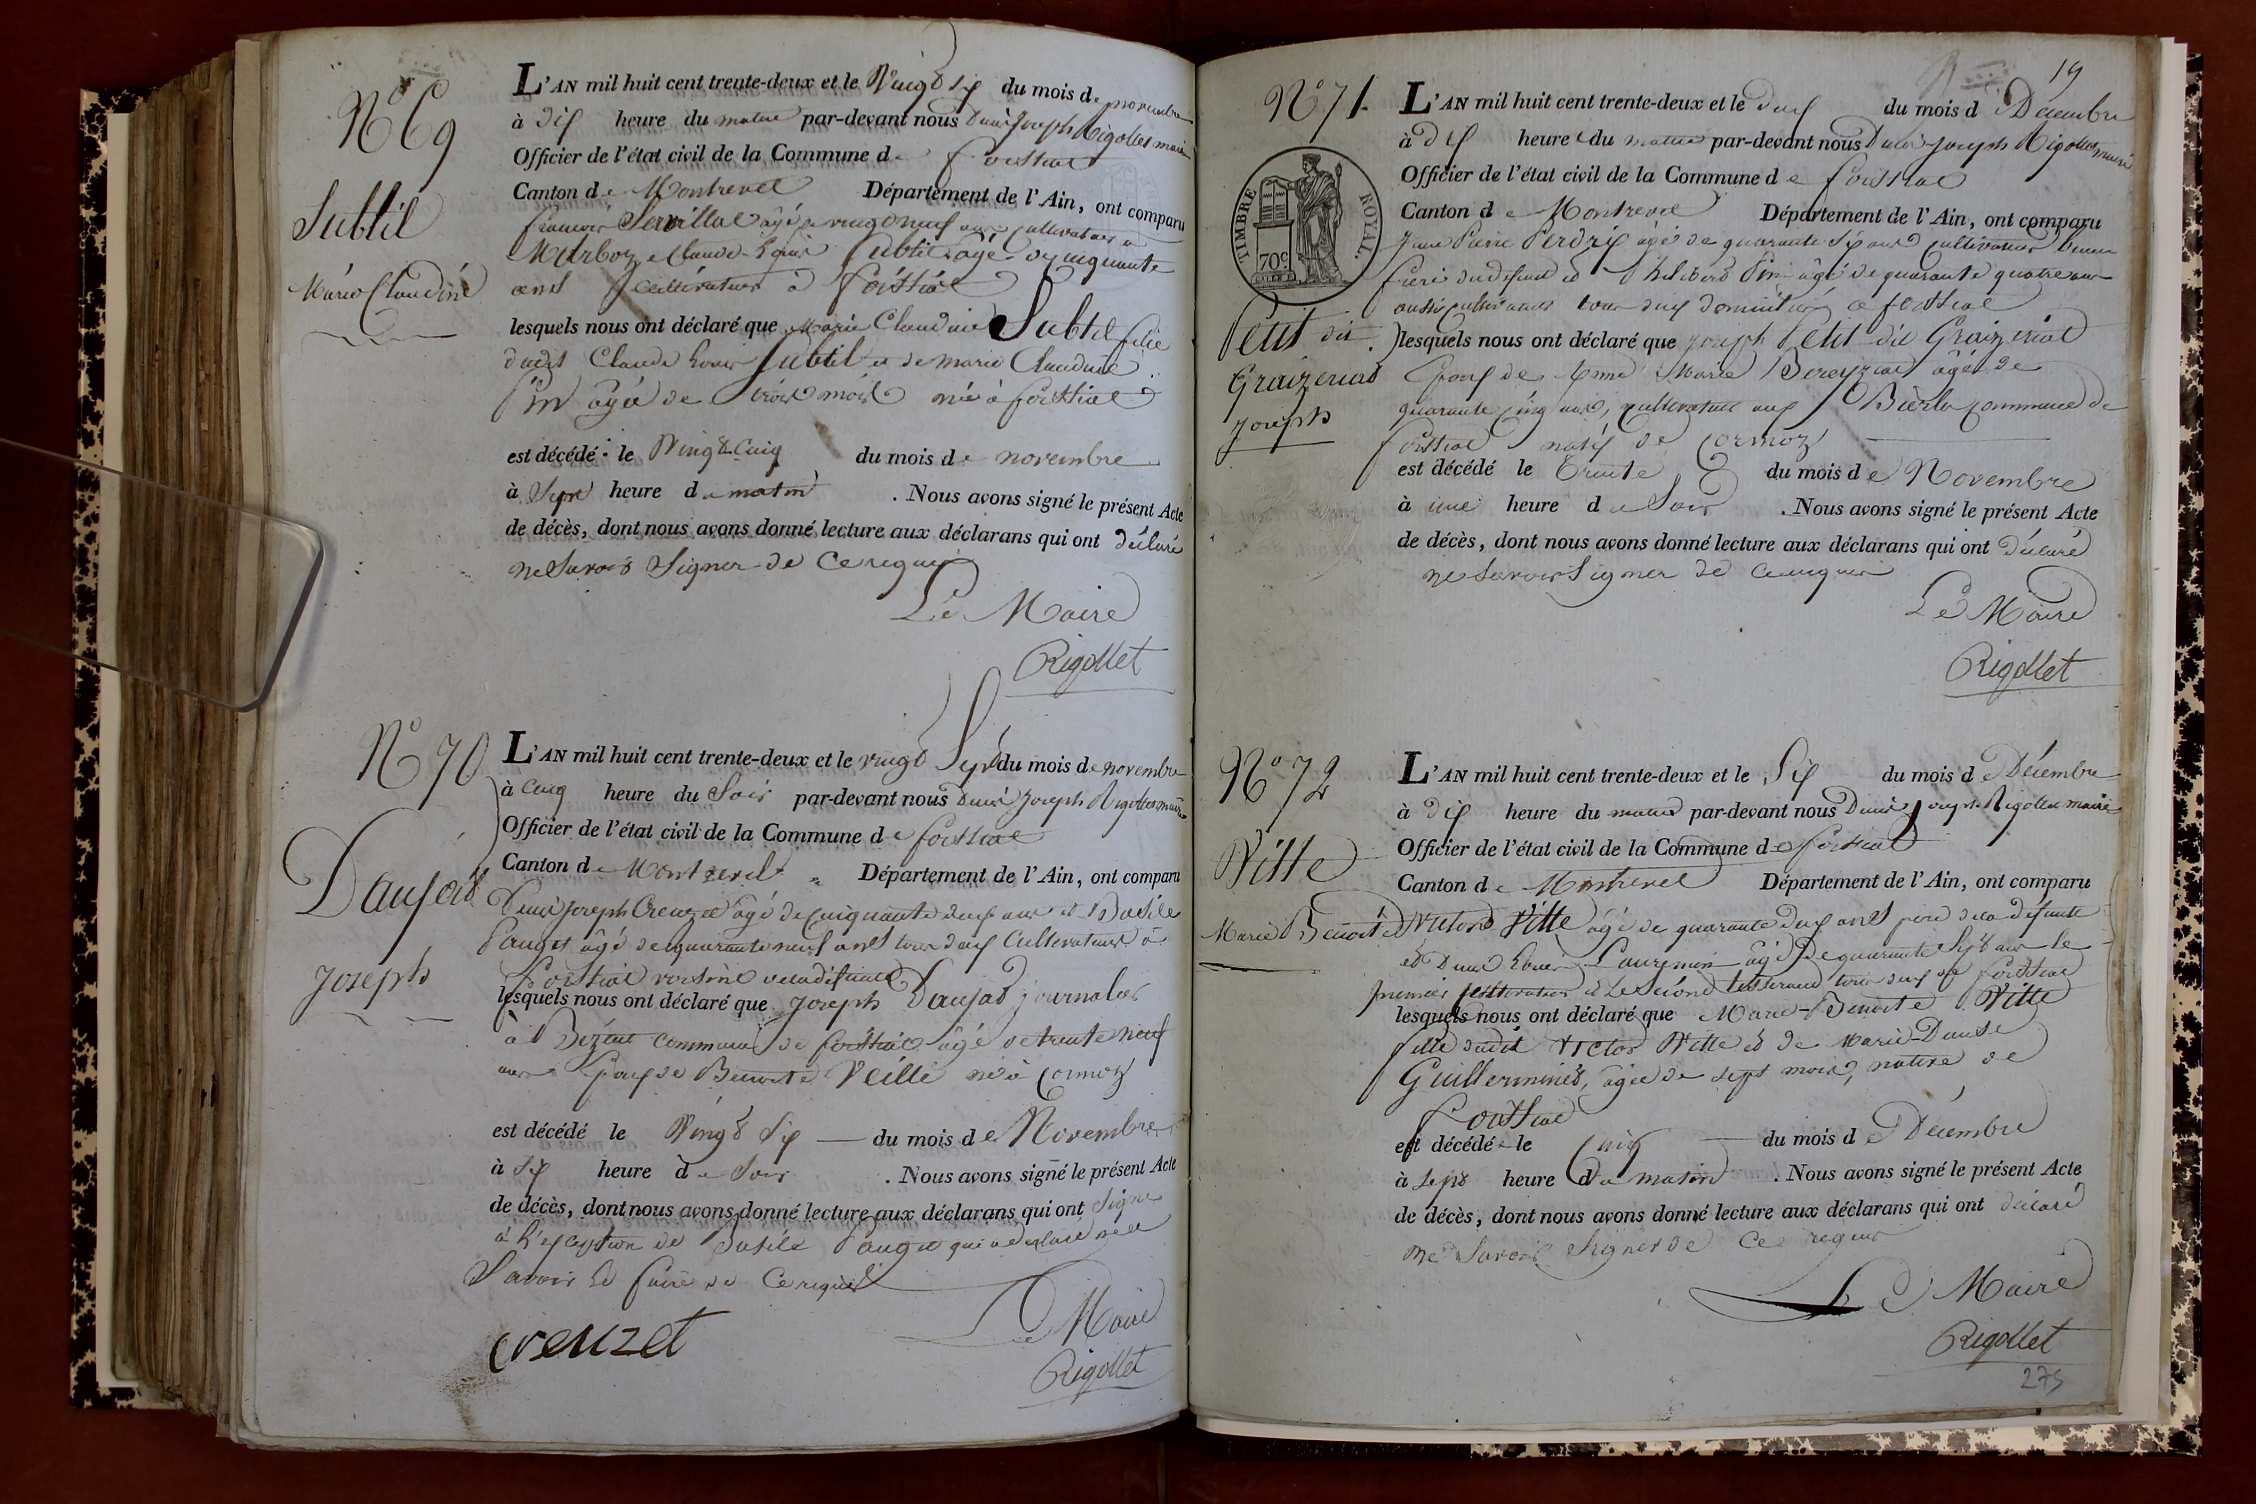 N° 69
Subtil
Marie Claudine
L'AN mil huit cent trente-deux et le Vingt Six du mois de novembre
à dix heure du matin par-devant nous Denis Joseph Rigollet maire
Officier de l'état civil de la Commune de Foissiat
Canton de Montrevel Département de l'Ain, ont comparu
François Servillat âgé de vingt neuf ans cultivateur à
Marboz et Claude Louis Subtil âgé de cinquante
ans cultivateur à Foissiat
lesquels nous ont déclaré que Marie Claudine Subtil fille
dudit Claude Louis Subtil et de Marie Claudine
Pin âgée de trois mois née à Foissiat
est décédé le Vingt Cinq du mois de novembre
à Sept heure du matin . Nous avons signé le présent Acte
de décès, dont nous avons donné lecture aux déclarans qui ont déclaré
ne Savoir Signer de ce requis
Le Maire
Rigollet
N° 70
Daujat
Joseph
L'AN mil huit cent trente-deux et le vingt Sept du mois de novembre
à cinq heure du Soir par-devant nous Denis Joseph Rigollet maire
Officier de l'état civil de la Commune de Foissiat
Canton de Montrevel Département de l'Ain, ont comparu
Denis Joseph Creuzet âgé de cinquante deux ans et Basile
Pauget âgé de quarante neuf ans tous deux Cultivateurs à
Foissiat
lesquels nous ont déclaré que Joseph Daujat journalier
à commune de Foissiat âgé de trente neuf
ans Epoux de Benoite Veille né à Cormoz
est décédé le Vingt Six du mois de Novembre
à Six heure de Soir . Nous avons signé le présent Acte
de décès, dont nous avons donné lecture aux déclarans qui ont Signé
à l'exception de Basile Pauget qui a déclaré ne
Savoir le faire de Ce requis
creuzet
Le Maire
Rigollet
19
N° 71.
TIMBRE ROYAL.
70c
Petit dit
Graizeriat
Joseph
L'AN mil huit cent trente-deux et le deux du mois de Décembre
à dix heure du matin par-devant nous Denis Joseph Rigollet maire
Officier de l'état civil de la Commune de Foissiat
Canton de Montrevel Département de l'Ain, ont comparu
Jean Pierre Perdrix âgé de quarante Six ans Cultivateur beau
frère du défunt et Philibert Pin âgé de quarante quatre ans
aussi cultivateur tous deux domiciliés à Foissiat
lesquels nous ont déclaré que Joseph Petit dit Graizeriat
Epoux de Anne Marie Bereyziat âgé de
quarante Cinq ans, cultivateur aux commune de
Foissiat natif de Cormoz
est décédé le Trente du mois de Novembre
à une heure de Soir . Nous avons signé le présent Acte
de décès, dont nous avons donné lecture aux déclarans qui ont déclaré
ne Savoir Signer de ce requis
Le Maire
Rigollet
N° 72
Vitte
Marie Benoite
L'AN mil huit cent trente-deux et le Six du mois de Décembre
à dix heure du matin par-devant nous Denis Joseph Rigollet maire
Officier de l'état civil de la Commune de Foissiat
Canton de Montrevel Département de l'Ain, ont comparu
Victor Vitte âgé de quarante deux ans père de la défunte
et Denis Louis âgé de quarante Sept ans le
premier cultivateur et le second tisserand tous deux de Foissiat
lesquels nous ont déclaré que Marie Benoite Vitte
fille dudit Victor Vitte et de Marie Denise
Guilleminet, âgée de sept mois, native de
Foissiat
est décédée le Cinq du mois de Décembre
à Sept heure du matin . Nous avons signé le présent Acte
de décès, dont nous avons donné lecture aux déclarans qui ont déclaré
ne Savoir Signer de Ce requis
Le Maire
Rigollet
275